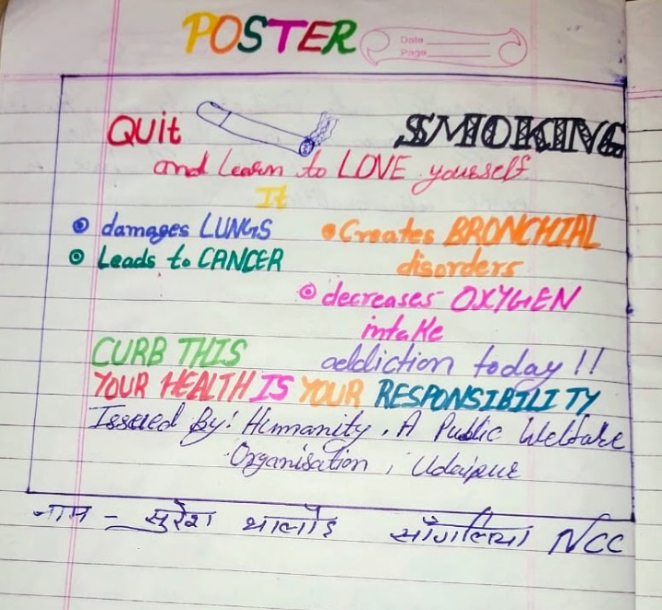 POSTER
Date
Page
Quit SMOKING
and Learn to LOVE yourself
It
damages LUNGS
Leads to CANCER
Creates BRONCHIAL
disorders
decreases OXYGEN
intake
CURB THIS addiction today !!
YOUR HEALTH IS YOUR RESPONSIBILITY
Issued By: Humanity, A Public Welfare
Organisation, Udaipur
नाम - सुरेश NCC